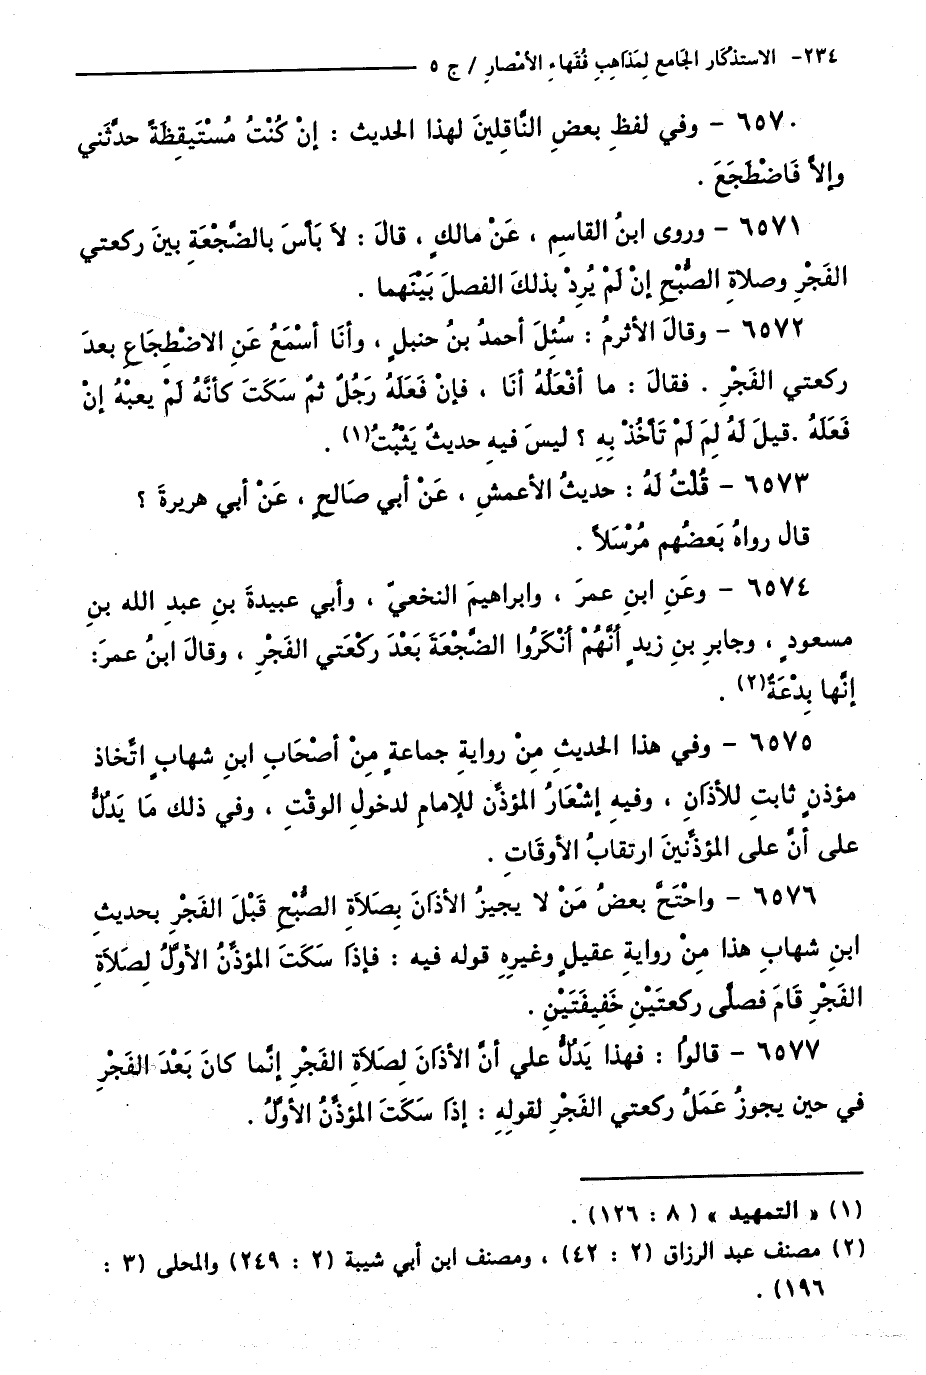 ٢٣٤- الاستذكار الجامع لِمَذاهِبِ فُقَهاءِ الأمْصارِ / ج ٥
٦٥٧٠ – وفي لفظِ بعضِ النَّاقلينَ لهذا الحديث : إنْ كُنْتُ مُسْتَيقِظَةً حدَّثَني
وإلاَّ فَاضْطَجَعَ .
٦٥٧١ – وروى ابنُ القاسمِ ، عَنْ مالكٍ ، قالَ : لاَ بَأسَ بالضَّجْعَةِ بينَ ركعتي
الفَجْرِ وصلاةِ الصُّبْحِ إنْ لَمْ يُرِدْ بذلكَ الفصلَ بَيْنَهما .
٦٥٧٢ – وقالَ الأثرمُ : سُئِلَ أحمدُ بنُ حنبلٍ ، وأنَا أسْمَعُ عَنِ الاضْطِجَاعِ بعدَ
ركعتي الفَجْرِ . فقالَ : ما أفْعَلُهُ أنَا ، فإنْ فَعَلَهُ رَجُلٌ ثمَّ سَكَتَ كأنَّهُ لَمْ يعبْهُ إنْ
فَعَلَهُ .قيلَ لَهُ لِمَ لَمْ تَأخُذْ بِهِ ؟ ليسَ فيهِ حديثٌ يَثْبُتُ(١) .
٦٥٧٣ – قُلْتُ لَهُ : حديثُ الأعمشِ ، عَنْ أبي صَالحٍ ، عَنْ أبي هريرةَ ؟
قال رواهُ بَعضُهم مُرْسَلاً .
٦٥٧٤ – وعَنِ ابنِ عمرَ ، وابراهيمَ النخعيِّ ، وأبي عبيدةَ بنِ عبدِ الله بنِ
مسعودٍ ، وجابرِ بنِ زيدٍ أنَّهُمْ أنْكَرُوا الضَّجْعَةَ بَعْدَ ركْعَتي الفَجْرِ ، وقالَ ابنُ عمرَ:
إنَّها بِدْعَةٌ(٢) .
٦٥٧٥ – وفي هذا الحديثِ مِنْ روايةِ جماعةٍ مِنْ أصْحَابِ ابنِ شهابٍ اتَّخاذ
مؤذنٍ ثابتِ للأذانِ ، وفيهِ إشْعَارُ المؤذَّن للإمامِ لدخولِ الوقْتِ ، وفي ذلك مَا يَدُلُّ
على أنَّ على المؤذَّنينَ ارتقابُ الأوقَاتِ .
٦٥٧٦ – واحْتَجَّ بعضُ مَنْ لا يجيزُ الأذانَ بِصَلاَةِ الصُّبْحِ قَبْلَ الفَجْرِ بحديثِ
ابنِ شهابٍ هذا مِنْ روايةِ عقيلٍ وغيرِهِ قوله فيه : فإذَا سَكَتَ المؤذَّنُ الأوَّلُ لِصَلاَةِ
الفَجْرِ قَامَ فصلَّى ركعتَيْنِ خَفِيفَتَيْنِ .
٦٥٧٧ – قالواُ : فهذا يَدُلُّ علي أنَّ الأذانَ لِصَلاَةِ الفَجْرِ إنَّما كانَ بَعْدَ الفَجْرِ
في حين يجوزُ عَمَلُ ركعتي الفَجْرِ لقولِهِ : إذَا سَكَتَ المؤذَّنُ الأوَّلُ .
(١) « التمهيد » ( ٨ : ١٢٦) .
(٢) مصنف عبد الرزاق (٢ : ٤٢) ، ومصنف ابن أبي شيبة (٢ : ٢٤٩) والمحلى (٣ :
١٩٦) .